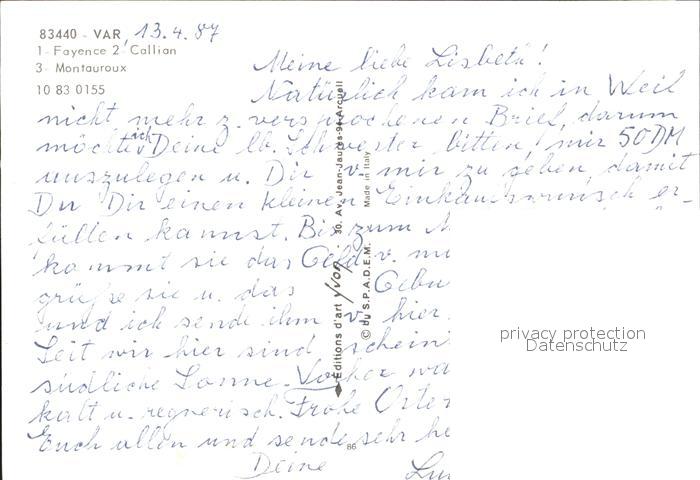 83440 - VAR 13.4.87
1 - Fayence 2 - Callian
3 - Montauroux
10 83 0155
Meine liebe Lisbeth!
Natürlich kam ich in Weil
nicht mehr z. versprochenen Brief, darum
möchte ich Deine lb. Schwester bitten, mir 50 DM
auszulegen u. Dir v. mir zu geben, damit
Du Dir einen kleinen Einkaufswunsch er-
füllen kannst. Bis zum
kommt sie das Geld v.
grüße sie u. das Gebu
und ich sende ihm v. hier
Seit wir hier sind, schein
südliche Sonne. Vorher wa
kalt u. regnerisch. Frohe Oster
Euch allen und sende sehr he
Deine
Editions d'art yvon 30, Av. Jean-Jaurès-94-Arcueil
Made in Italy
© du S.P.A.D.E.M.
86
privacy protection
Datenschutz